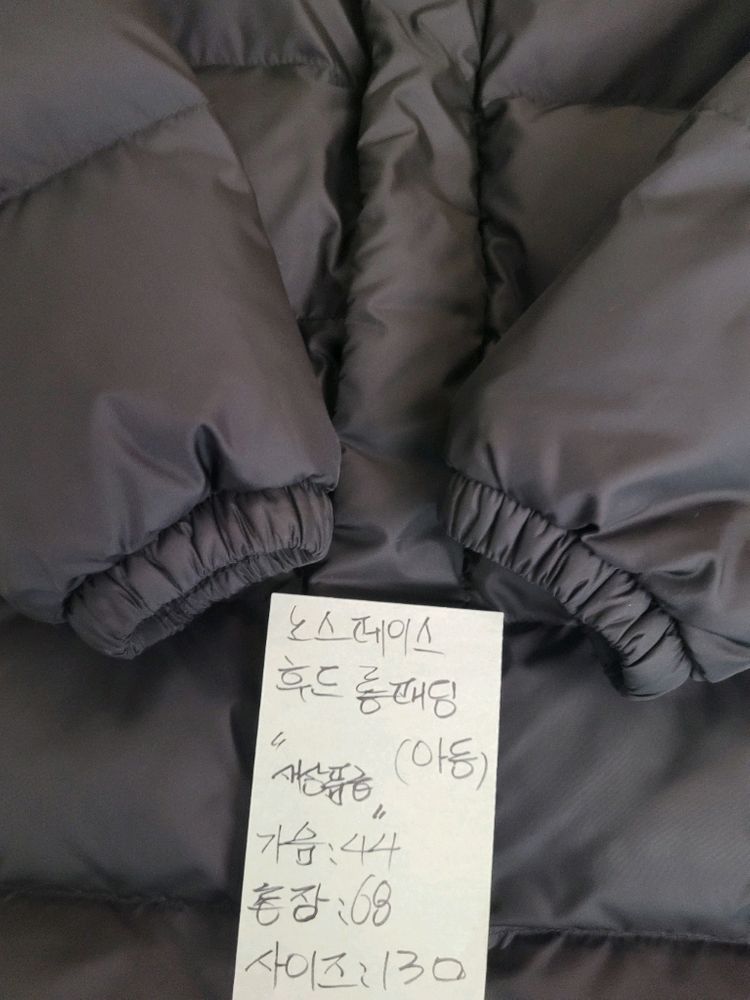 노스페이스
후드 롱패딩
(아동)
"새상품급"
가슴:44
총장:68
사이즈:130